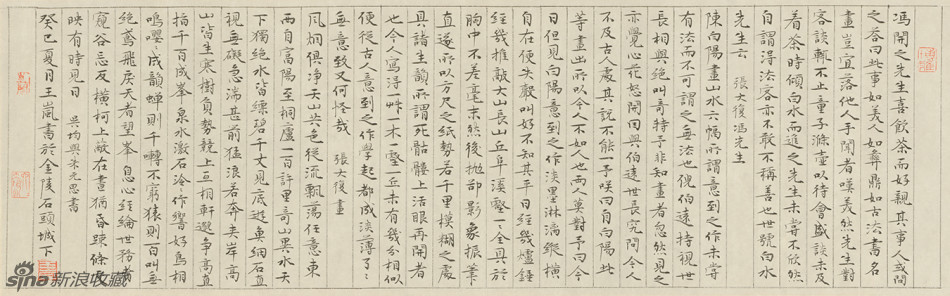 馮開之先生喜飲茶而好親其事人或問
之答曰此事如美人如彝鼎如古法書名
畫豈宜落他人手聞者嘆美然先生對
客談輒不止童子滌壺以待會盛談未及
着茶時傾白水而進之先生未嘗不欣然
自謂得法客亦不敢不稱善也世號白水
先生云 張大復馮先生
陳白陽畫山水六幅所謂意到之作未嘗
有法而不可謂之無法也倪伯遠持視世
長相與絕叫奇特予非知畫者忽然見之
亦覺心花怒開因與伯遠世長究問今人
不及古人處其說不能一予咲曰自白陽此
等畫出所以令人不如人也兩人莫對予曰今
日但見白陽意到之作淡墨淋漓縱橫
自在便失聲叫好不知其平日經幾爐錘
經幾推敲大山長山丘阜溪壑一一全具於
胸中不差毫末然後拋卻影象振筆
直遂所以方尺之紙勢若千里模糊之處
具諸生韻所謂死骷髏上活眼再開者
也今人寫得艸一木一壑一丘未有幾分相似
便從古人意到之作學起都成淡薄了
無意致又何怪哉 張大復畫
風烟俱凈天山共色從流飄蕩任意東
西自富陽至桐廬一百許里奇山異水天
下獨絕水皆縹碧千丈見底遊魚細石直
視無礙急湍甚箭猛浪若奔夾岸高
山皆生寒樹負勢競上互相軒邈爭高直
指千百成峯泉水激石泠泠作響好鳥相
鳴嚶嚶成韻蟬則千囀不窮猨則百叫無
絕鳶飛戾天者望峯息心經綸世務者
窺谷忘反橫柯上蔽在晝猶昏疎條交
映有時見日 吳均與朱元思書
癸巳夏月王嵐書於金陵石頭城下
sina新浪收藏